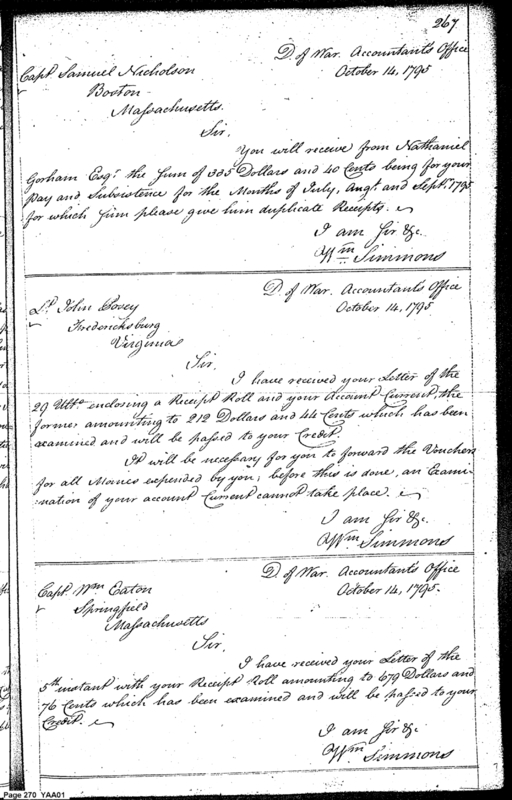 267
D. of War. Accountant's Office
October 14, 1795
Capt. Samuel Nicholson
Boston
Massachusetts.
Sir,
You will receive from Nathaniel
Gorham Esqr. the Sum of 335 Dollars and 40 Cents being for your
Pay and Subsistence for the Months of July, Augt. and Septr. 1795
for which Sum please give him duplicate Receipts.
I am Sir &c.
Wm Simmons
D. of War. Accountant's Office
October 14, 1795.
Lt. John Posey
Fredericksburg
Virginia
Sir.
I have received your Letter of the
29 Ulto. enclosing a Receipt Roll and your Account Current, the
former amounting to 212 Dollars and 44 Cents which has been
examined and will be passed to your Credit.
It will be necessary for you to forward the Vouchers
for all Monies expended by you; before this is done, an Exami-
nation of your account Current cannot take place.
I am Sir &c.
Wm Simmons
D. of War. Accountant's Office
October 14, 1795.
Capt. Wm Eaton
Springfield
Massachusetts
Sir.
I have received your Letter of the
5th instant with your Receipt Roll amounting to 679 Dollars and
76 Cents which has been examined and will be passed to your
Credit.
I am Sir &c.
Wm Simmons
Page 270 YAA01